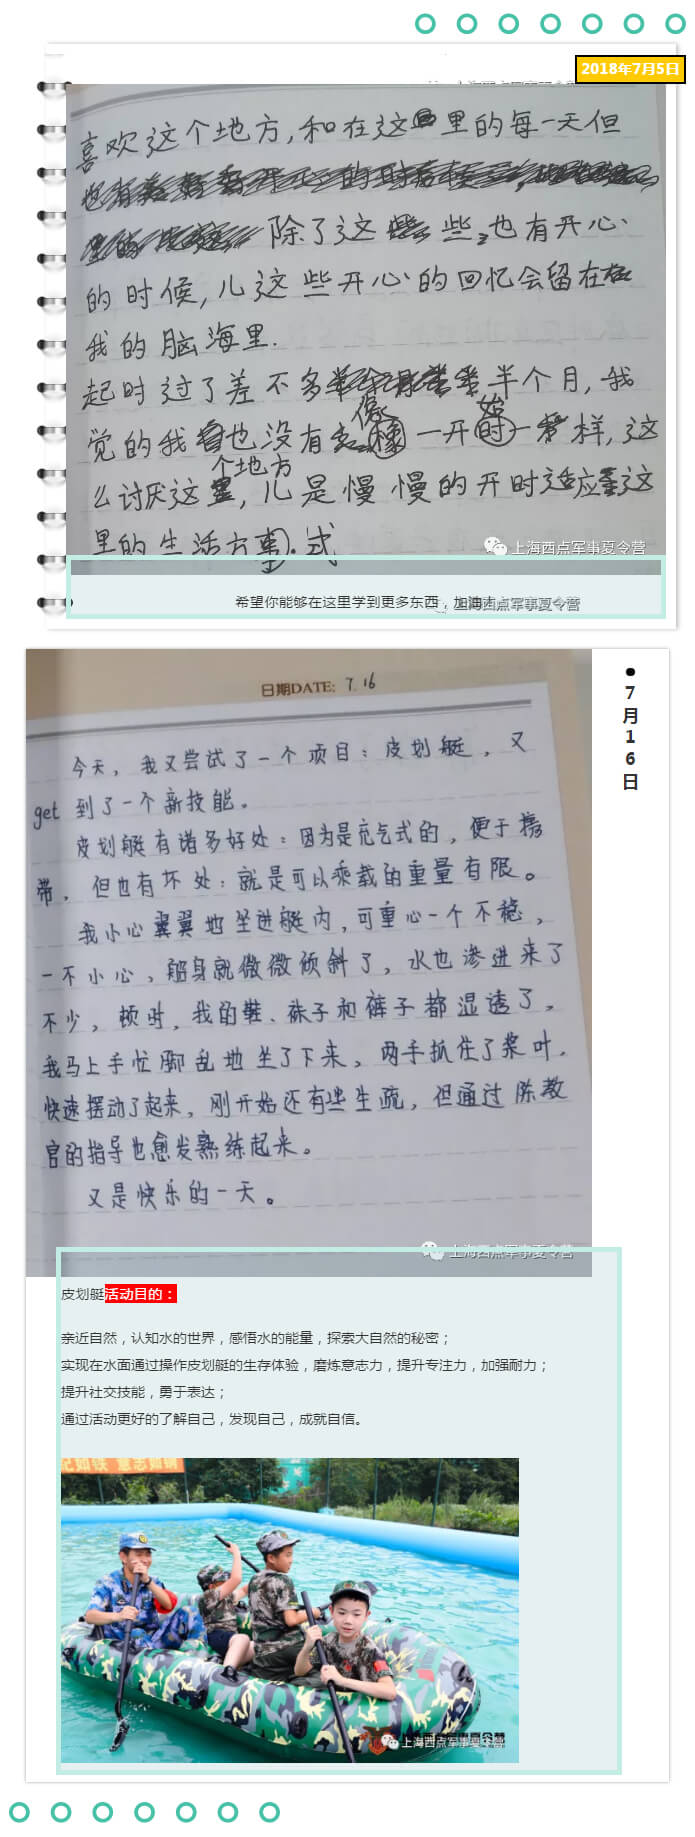 2018年7月5日
喜欢这个地方,和在这里的每一天但
除了这些,也有开心
的时候,儿这些开心的回忆会留在
我的脑海里.
起时过了差不多半个月,我
觉的我也没有像一开始一样,这
么讨厌这个地方,儿是慢慢的开时适应这
里的生活方式
上海西点军事夏令营
希望你能够在这里学到更多东西,加油
上海西点军事夏令营
7月16日
日期DATE: 7.16
今天,我又尝试了一个项目:皮划艇,又
get 到了一个新技能。
皮划艇有诸多好处:因为是充气式的,便于携
带,但也有坏处:就是可以乘载的重量有限。
我小心翼翼地坐进艇内,可重心一个不稳,
一不小心,艇身就微微倾斜了,水也渗进来了
不少,顿时,我的鞋、袜子和裤子都湿透了,
我马上手忙脚乱地坐了下来,两手抓住了桨叶,
快速摆动了起来,刚开始还有些生疏,但通过陈教
官的指导也愈发熟练起来。
又是快乐的一天。
上海西点军事夏令营
皮划艇活动目的:
亲近自然,认知水的世界,感悟水的能量,探索大自然的秘密;
实现在水面通过操作皮划艇的生存体验,磨炼意志力,提升专注力,加强耐力;
提升社交技能,勇于表达;
通过活动更好的了解自己,发现自己,成就自信。
纪如铁 意志如钢
上海西点军事夏令营